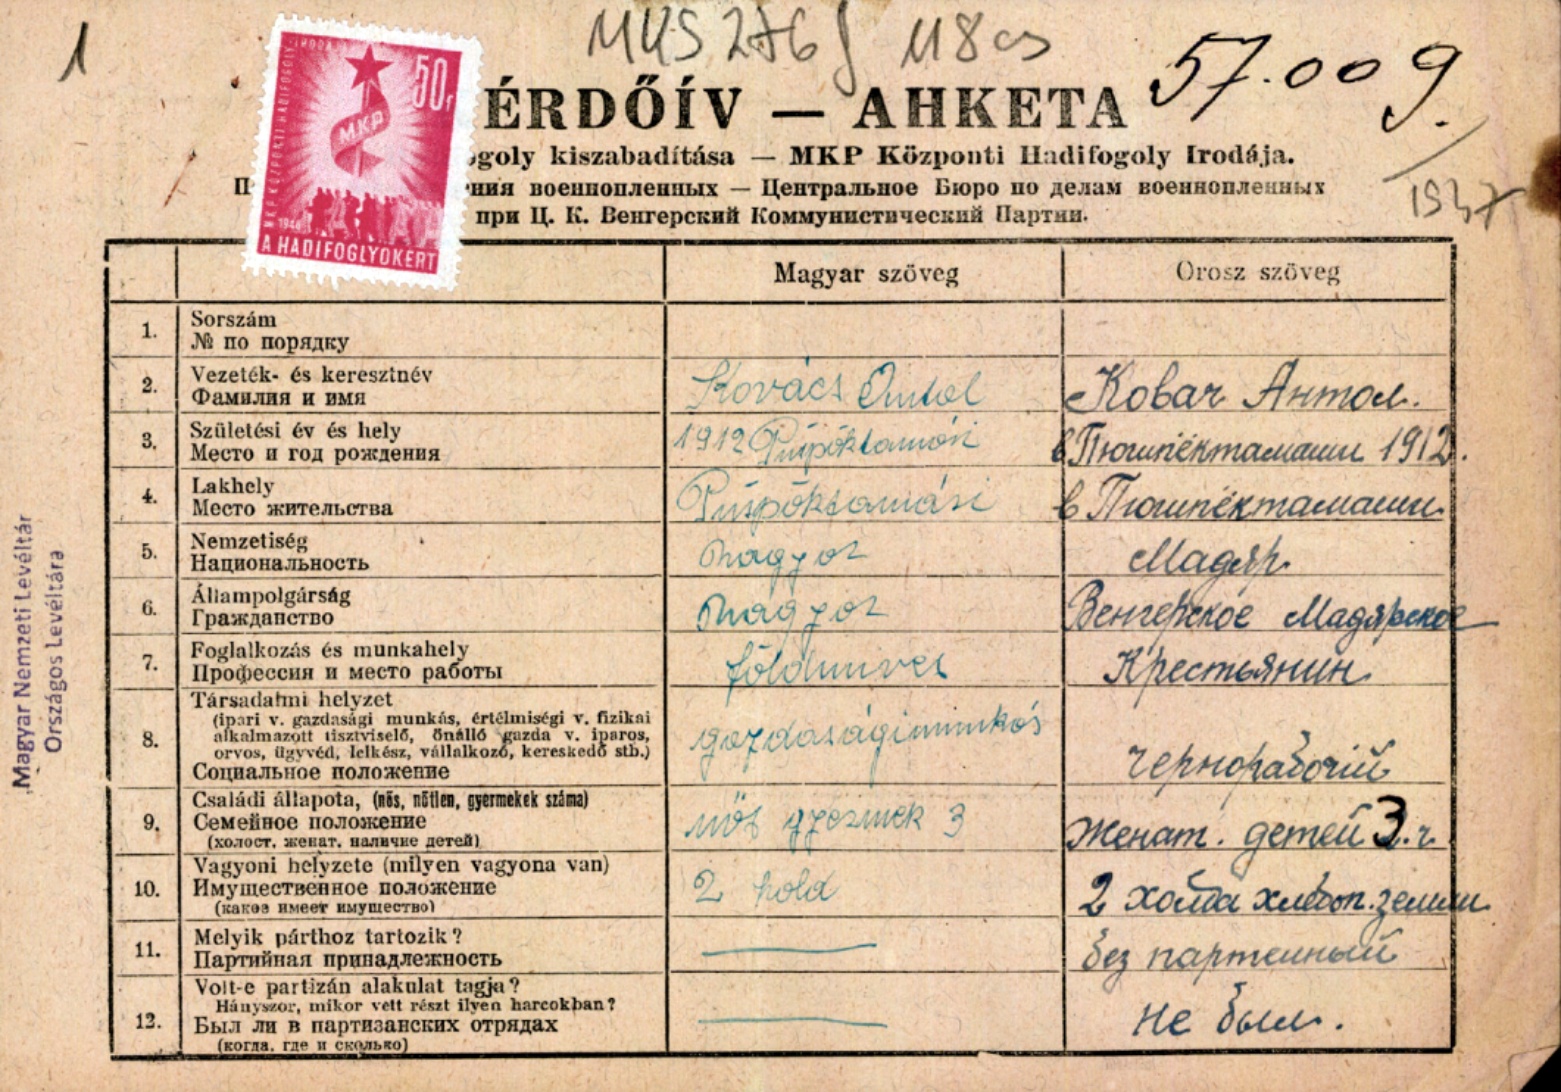 1
MKS 276 f 118 cs
57.009.
1947
MKP KÖZPONTI HADIFOGOLY IRODÁJA
50f
MKP
1946
A HADIFOGLYOKÉRT
ÉRDŐÍV — АНКЕТА
ogoly kiszabadítása — MKP Központi Hadifogoly Irodája.
П ния военнопленных — Центральное Бюро по делам военнопленных
при Ц. К. Венгерский Коммунистический Партии.
Magyar szöveg Orosz szöveg
1. Sorszám
№ по порядку
2. Vezeték- és keresztnév
Фамилия и имя
Kovács Antal Ковач Антол.
3. Születési év és hely
Место и год рождения
1912 Püspöktamási в Пюшпёктамаши 1912.
4. Lakhely
Место жительства
Püspöktamási в Пюшпёктамаши
5. Nemzetiség
Национальность
magyar Мадяр.
6. Állampolgárság
Гражданство
magyar Венгерское Мадярское
7. Foglalkozás és munkahely
Профессия и место работы
földmives Крестьянин
8. Társadalmi helyzet
(ipari v. gazdasági munkás, értélmiségi v. fizikai
alkalmazott tisztviselő, önálló gazda v. iparos,
orvos, ügyvéd, lelkész, vállalkozó, kereskedő stb.)
Социальное положение
gazdaságimunkás чернорабочій
9. Családi állapota, (nős, nőtlen, gyermekek száma)
Семейное положение
(холост. женат. наличие детей)
nős gyermek 3 Женат. детей 3.ч
10. Vagyoni helyzete (milyen vagyona van)
Имущественное положение
(какое имеет имущество)
2 hold 2 холда хлебоп. земли
11. Melyik párthoz tartozik?
Партийная принадлежность
без партейный
12. Volt-e partizán alakulat tagja?
Hányszor, mikor vett részt ilyen harcokban?
Был ли в партизанских отрядах
(когда, где и сколько)
не был.
Magyar Nemzeti Levéltár
Országos Levéltára